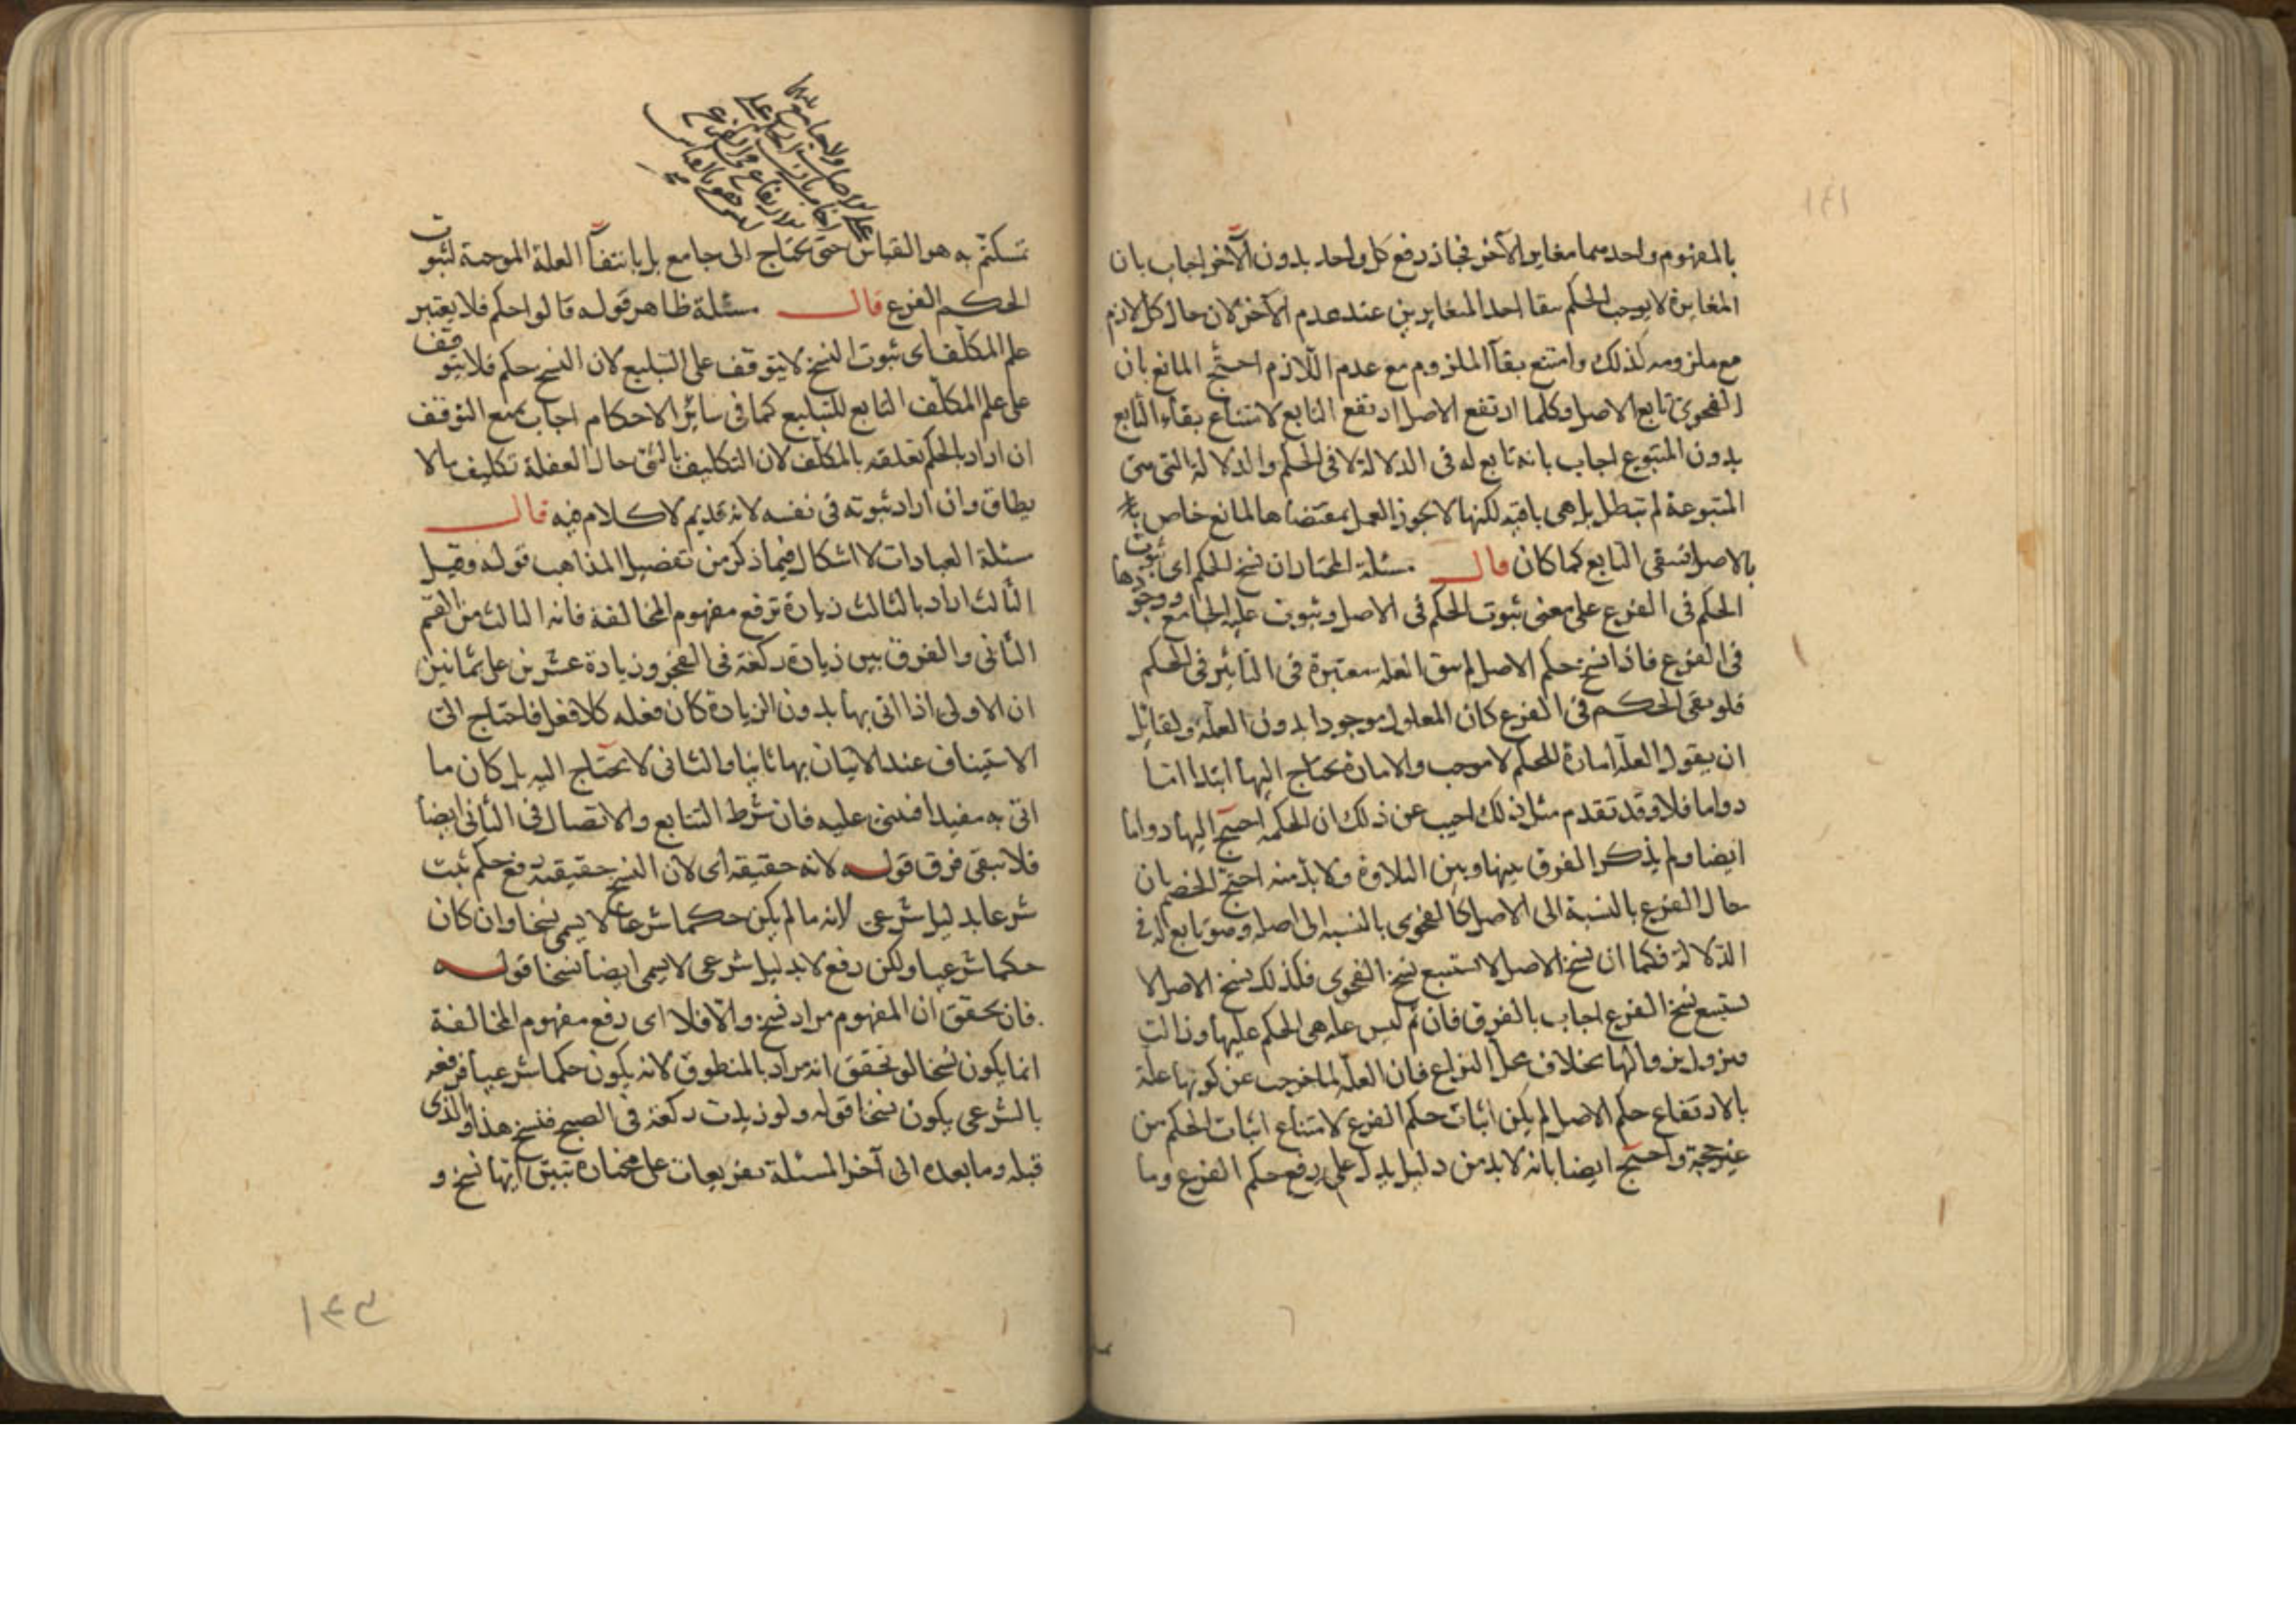 بالمفهوم واحد منهما مغاير الآخر فجاز رفع كل واحد بدون الآخر اجاب بان
المغايرة لا يوجب الحكم ببقا احد المتغايرين عند عدم الآخر لان حال كل لازم
مع ملزومه كذلك وامتنع بقآ الملزوم مع عدم اللازم احتج المانع بان
الفحوى تابع الاصل وكلما ارتفع الاصل ارتفع التابع لامتناع بقاء التابع
بدون المتبوع اجاب بانه تابع له فى الدلالة لا فى الحكم والدلالة التى هى
المتبوعة لم تبطل بل هى باقية لكنها لا يجوز العمل بمقتضاها لمانع خاص
بالاصل فبقى التابع كما كان قال مسئلة المختار ان نسخ الحكم اى ثبوت
الحكم فى الفرع على معنى ثبوت الحكم فى الاصل وثبوت علية الجامع ووجودها
فى الفرع فاذا نسخ حكم الاصل لم يبق العلة معتبرة فى التاثير فى الحكم
فلو بقى الحكم فى الفرع كان المعلول موجودا بدون العلة ولقائل
ان يقول العلة امارة للحكم لا موجب والامارة يحتاج اليها ابتدا اما
دواما فلا وقد تقدم مثل ذلك اجيب عن ذلك ان الحكمة احتيج اليها دواما
ايضا ولم يذكر الفرق بينها وبين التلاوة ولا بد منه احتج الخصم بان
حال الفرع بالنسبة الى الاصل كالفحوى بالنسبة الى اصله وهو تابع له فى
الدلالة فكما ان نسخ الاصل لا يستتبع نسخ الفحوى فكذلك نسخ الاصل لا
يستتبع نسخ الفرع اجاب بالفرق فان ثم ليس علة هى الحكم عليها وزالت
فيزول بزوالها بخلاف محل النزاع فان العلة لما خرجت عن كونها علة
بالارتفاع حكم الاصل لم يكن اثبات حكم الفرع لامتناع اثبات الحكم من
غير حجة واحتج ايضا بانه لا بد من دليل يدل على رفع حكم الفرع وما
تمسكتم به هو القياس حتى يحتاج الى جامع بل بانتفآ العلة الموجبة لثبوت
الحكم الفرع قال مسئلة ظاهر قوله قالوا حكم فلا يعتبر
علم المكلف اى ثبوت النسخ لا يتوقف على التبليغ لان النسخ حكم فلا يتوقف
على علم المكلف التابع للتبليغ كما فى سائر الاحكام اجاب بمنع التوقف
ان اراد بالحكم تعلقه بالمكلف لان التكليف بالشئ حال الغفلة تكليف بما لا
يطاق وان اراد ثبوته فى نفسه لانه قديم لا كلام فيه قال
مسئلة العبادات لا اشكال فيما ذكر من تفصيل المذاهب قوله وقيل
الثالث اراد بالثالث زيادة ترفع مفهوم المخالفة فانه الثالث من القسم
الثانى والفرق بين زيادة ركعة فى الفجر وزيادة عشرين على ثمانين
ان الاولى اذا اتى بها بدون الزيادة كان فعله كلا فعل فاحتاج الى
الاستيناف عند الاتيان بها ثانيا والثانى لا يحتاج اليه بل كان ما
اتى به مفيدا فيبنى عليه فان شرط التتابع والاتصال فى الثانى ايضا
فلا يبقى فرق قوله لانه حقيقة اى لان النسخ حقيقته رفع حكم ثبت
شرعا بدليل شرعى لانه ما لم يكن حكما شرعيا لا يسمى نسخا وان كان
حكما شرعيا ولكن رفع لا بدليل شرعى لا يسمى ايضا نسخا قوله
فان تحقق ان المفهوم مراد نسخ والا فلا اى رفع مفهوم المخالفة
انما يكون نسخا لو تحقق انه مراد بالمنطوق لانه يكون حكما شرعيا فرفعه
بالشرعى يكون نسخا قوله ولو زيدت ركعة فى الصبح فنسخ هذا والذى
قبله وما بعده الى آخر المسئلة تفريعات على مختاره تبين ايها نسخ و
١٤٣